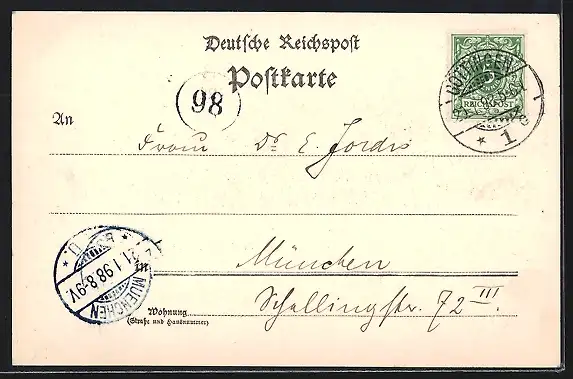 Deutsche Reichspost
Postkarte
98
GÖTTINGEN
REICHSPOST
* 1 c
An
Frau Dr E. Jordis
in München
21.1.98.8-9V.
MUENCHEN
Schellingstr. 72 III.
Wohnung
(Straße und Hausnummer)